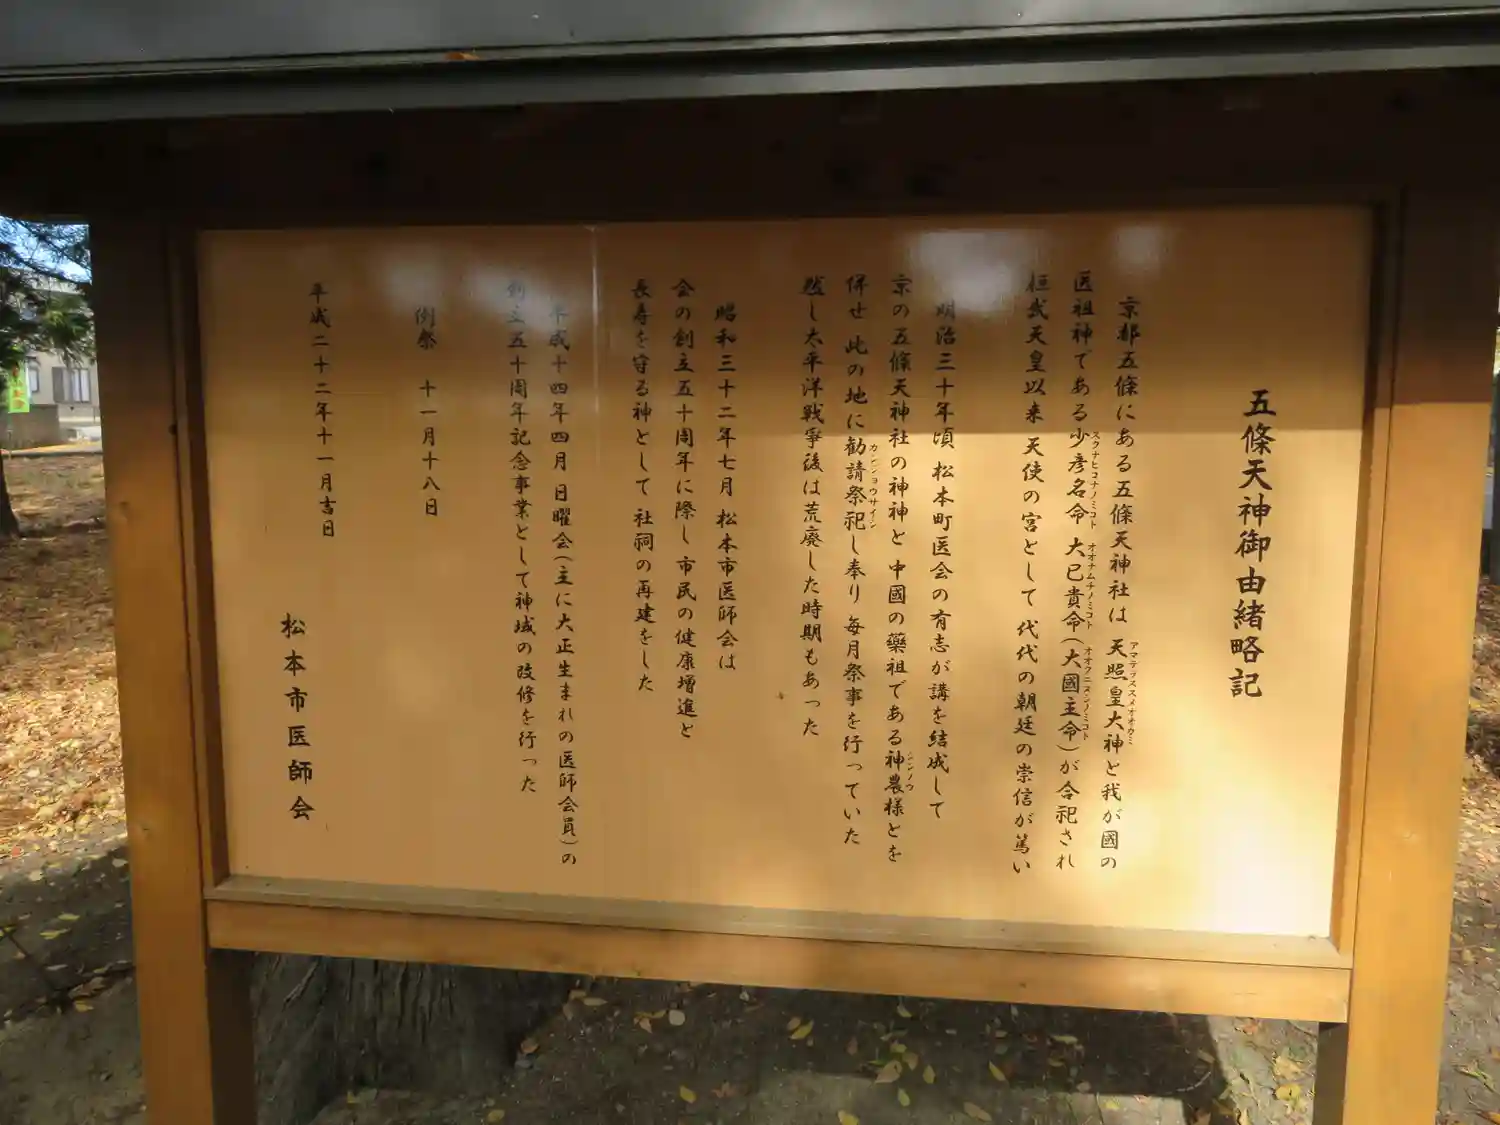 五條天神御由緒略記
京都五條にある五條天神社は 天照皇大神と我が國の
アマテラススメオオカミ
医祖神である少彦名命 大已貴命(大國主命)が合祀され
スクナヒコナノミコト オオナムチノミコト オオクニヌシノミコト
桓武天皇以来 天使の宮として 代代の朝廷の崇信が篤い
明治三十年頃 松本町医会の有志が講を結成して
京の五條天神社の神神と中國の藥祖である神農様とを
シンノウ
併せ 此の地に勧請祭祀し奉り 毎月祭事を行っていた
カンジョウサイシ
然し太平洋戦争後は荒廃した時期もあった
昭和三十二年七月 松本市医師会は
会の創立五十周年に際し 市民の健康増進と
長寿を守る神として 社祠の再建をした
平成十四年四月 日曜会(主に大正生まれの医師会員)の
創立五十周年記念事業として神域の改修を行った
例祭 十一月十八日
平成二十二年十一月吉日
松本市医師会